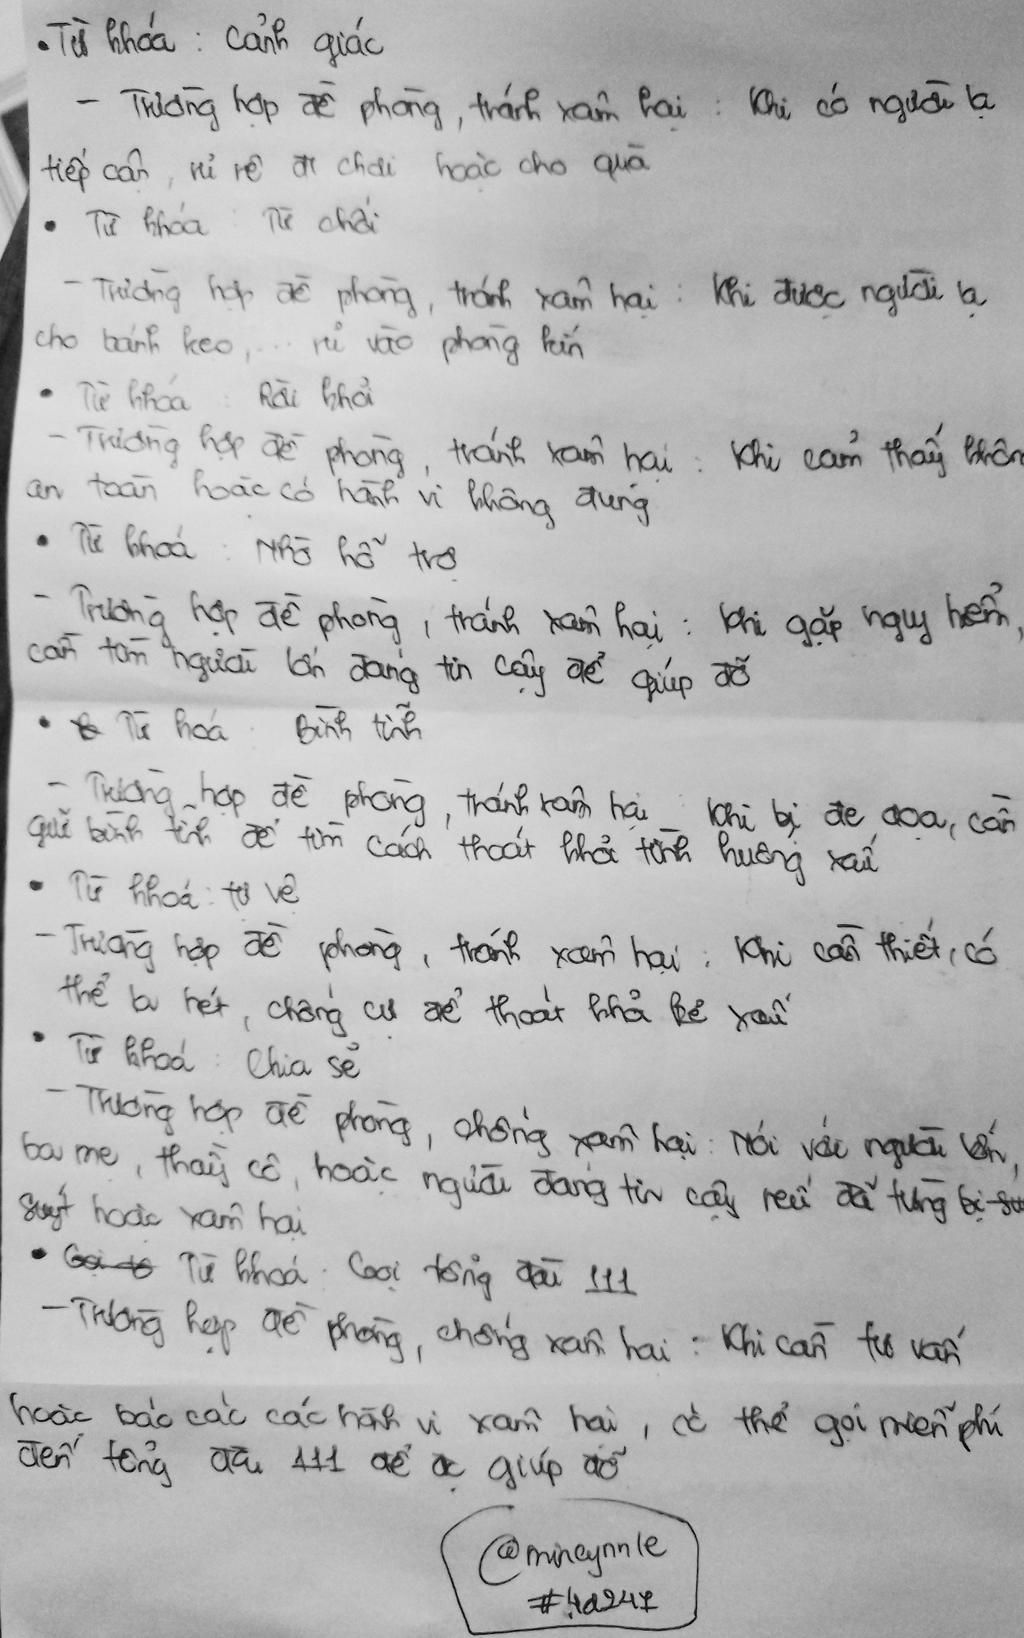 • Từ khóa : cảnh giác
- Trường hợp đề phòng, tránh xâm hại : Khi có người lạ
tiếp cận, rủ rê đi chơi hoặc cho quà
• Từ khóa : Từ chối
- Trường hợp đề phòng, tránh xâm hại : Khi được người lạ
cho bánh kẹo,... rủ vào phòng kín
• Từ khóa : Rời khỏi
- Trường hợp đề phòng, tránh xâm hại : Khi cảm thấy khôn
an toàn hoặc có hành vi không đúng
• Từ khoá : Nhờ hỗ trợ
- Trường hợp đề phòng, tránh xâm hại : Khi gặp nguy hiểm,
cần tìm người lớn đáng tin cậy để giúp đỡ
• Từ hoá : Bình tĩnh
- Trường hợp đề phòng, tránh xâm hại : Khi bị đe doạ, cần
giữ bình tĩnh để tìm cách thoát khỏi tình huống xấu
• Từ khoá : tự vệ
- Trường hợp đề phòng, tránh xâm hại : Khi cần thiết, có
thể la hét, chống cự để thoát khỏi kẻ xấu
• Từ khoá : Chia sẻ
- Trường hợp đề phòng, chống xâm hại : Nói với người lớn,
ba mẹ, thầy cô, hoặc người đáng tin cậy nếu đã từng bị
suýt hoặc xâm hại
• Từ khoá : Gọi tổng đài 111
- Trường hợp đề phòng, chống xâm hại : Khi cần tư vấn
hoặc báo cáo các hành vi xâm hại, có thể gọi miễn phí
đến tổng đài 111 để đc giúp đỡ
@mineynnle
#4d241